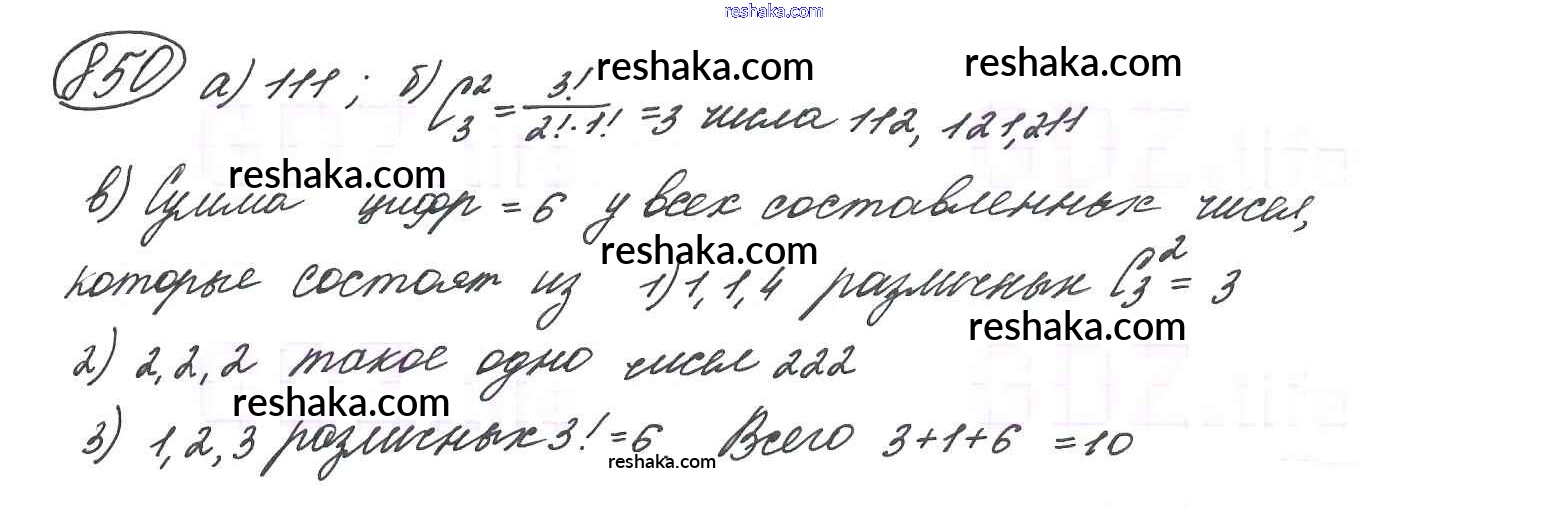 reshaka.com
850 а) 111 ; б) C₃² = 3!/(2!·1!) = 3 числа 112, 121, 211
reshaka.com
reshaka.com
reshaka.com
в) Сумма цифр = 6 у всех составленных чисел,
reshaka.com
которые состоят из 1) 1, 1, 4 различных C₃² = 3
reshaka.com
2) 2, 2, 2 такое одно чисел 222
reshaka.com
3) 1, 2, 3 различных 3! = 6. Всего 3+1+6 = 10
reshaka.com